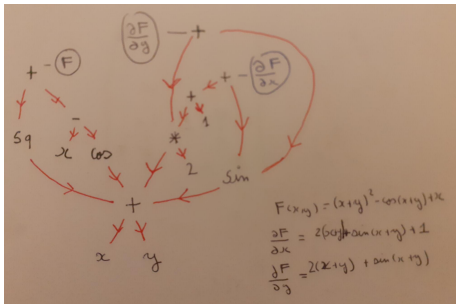 ∂F/∂y - +
+ - F
+ - ∂F/∂x
+
1
-
*
sq
x
cos
2
sin
+
x
y
F(x,y) = (x+y)² - cos(x+y) + x
∂F/∂x = 2(x+y) + sin(x+y) + 1
∂F/∂y = 2(x+y) + sin(x+y)